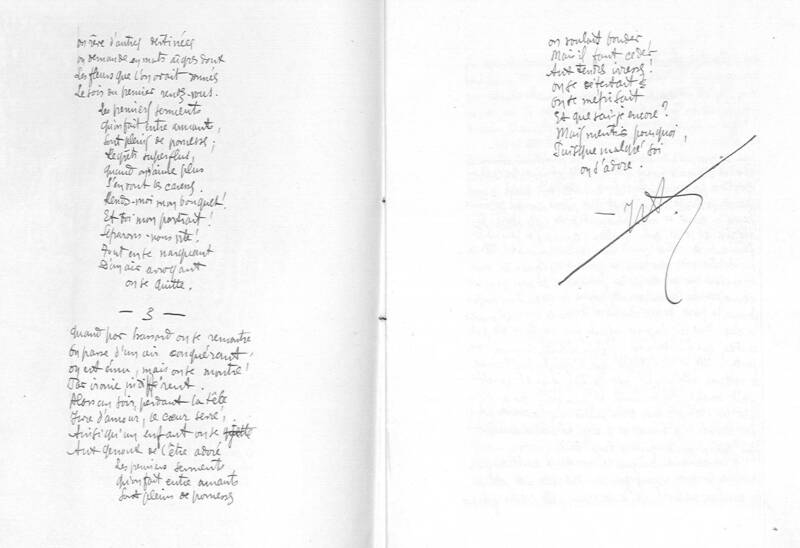 on rêve d'autres destinées
on demande en mots aigres doux
Les fleurs que l'on avait données
Le soir du premier rendez-vous.
Les premiers serments
qu'on fait entre amants,
sont pleins de promesses;
Regrets superflus,
quand on s'aime plus
S'en vont les caresses.
Rends-moi mon bouquet!
Et toi mon portrait!
Séparons-nous vite!
Tout en se narguant
D'un air arrogant
on se quitte.
— 3 —
Quand par hasard on se rencontre
on passe d'un air conquérant,
on est ému, mais on se montre
Par ironie indifférent.
Alors un soir, perdant la tête
Ivre d'amour, le cœur serré,
Ainsi qu'un enfant on se
Aux genoux de l'être adoré
Les premiers serments
qu'on fait entre amants
sont pleins de promesses
on voulait bouder,
Mais il faut céder
Aux tendres ivresses!
on se détestait
on se méprisait
Et que sais-je encore?
Mais mentir pourquoi,
Puisque malgré soi
on s'adore.